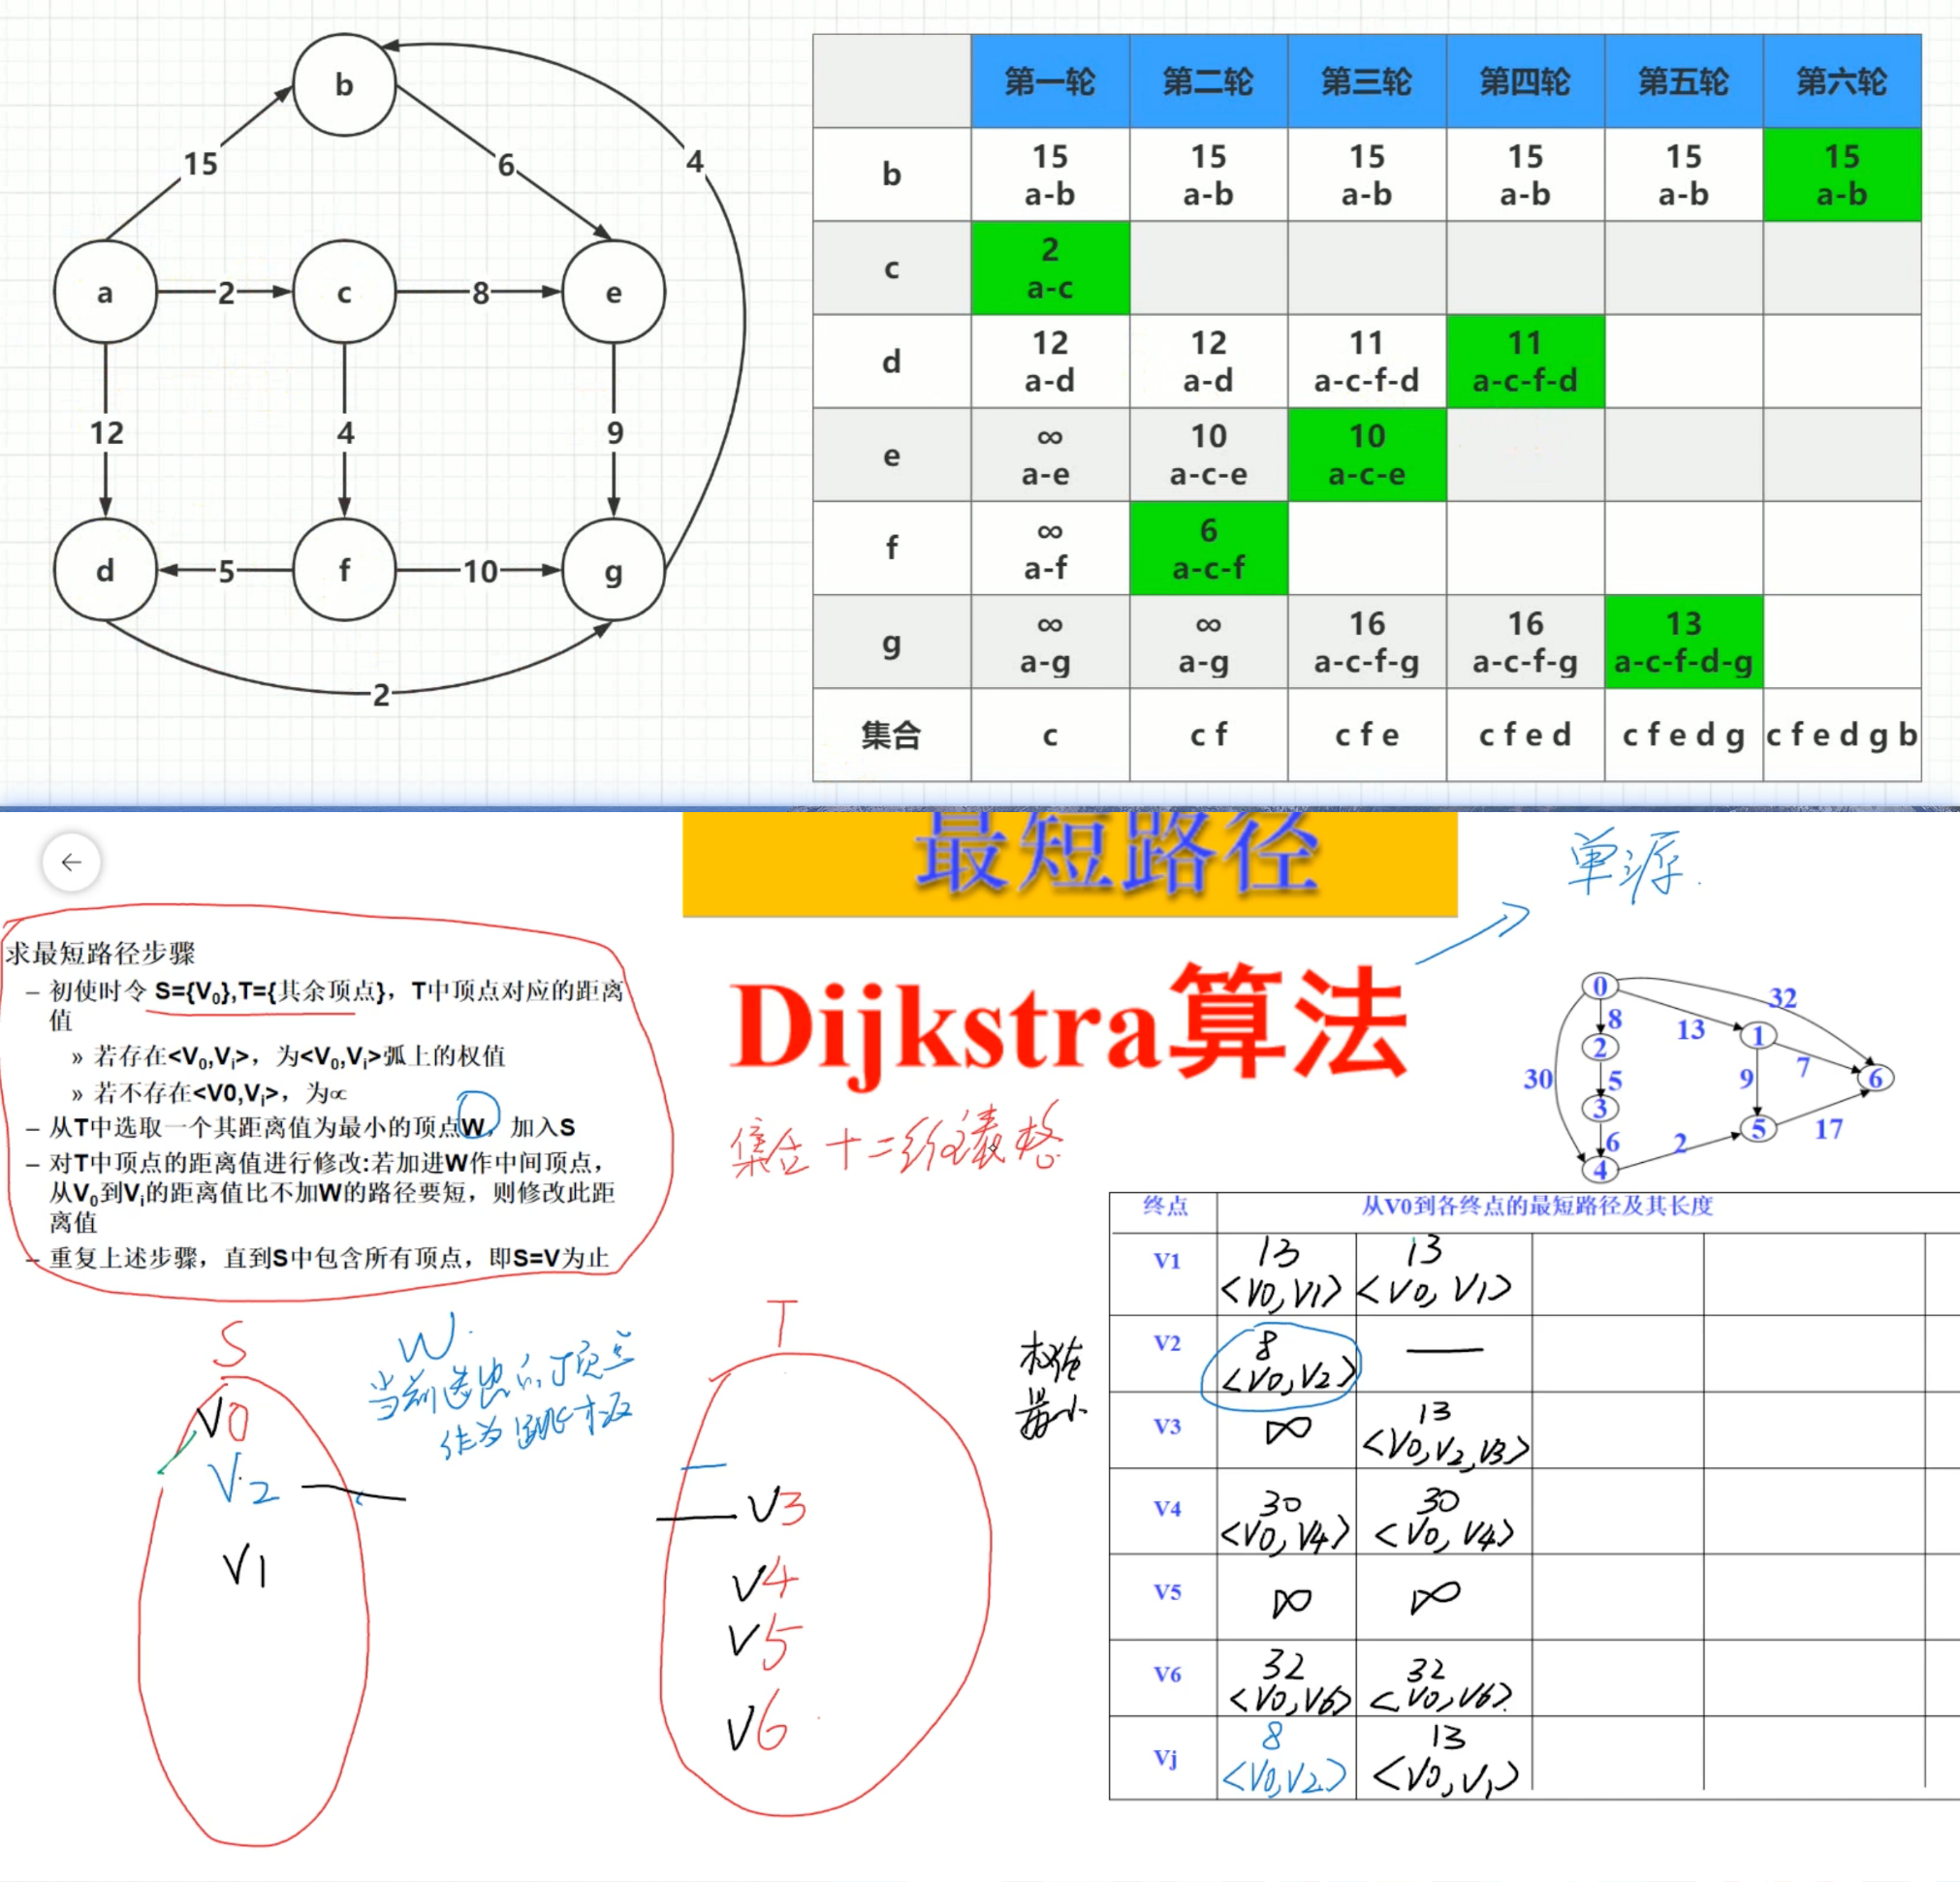 b
15
6
4
a
2
c
8
e
12
4
9
d
5
f
10
g
2
第一轮 第二轮 第三轮 第四轮 第五轮 第六轮
b 15 a-b 15 a-b 15 a-b 15 a-b 15 a-b 15 a-b
c 2 a-c
d 12 a-d 12 a-d 11 a-c-f-d 11 a-c-f-d
e ∞ a-e 10 a-c-e 10 a-c-e
f ∞ a-f 6 a-c-f
g ∞ a-g ∞ a-g 16 a-c-f-g 16 a-c-f-g 13 a-c-f-d-g
集合 c c f c f e c f e d c f e d g c f e d g b
最短路径
单源.
求最短路径步骤
– 初使时令 S={V₀},T={其余顶点}，T中顶点对应的距离
值
» 若存在<V₀,Vᵢ>，为<V₀,Vᵢ>弧上的权值
» 若不存在<V0,Vᵢ>，为∝
– 从T中选取一个其距离值为最小的顶点W，加入S
– 对T中顶点的距离值进行修改:若加进W作中间顶点，
从V₀到Vᵢ的距离值比不加W的路径要短，则修改此距
离值
– 重复上述步骤，直到S中包含所有顶点，即S=V为止
Dijkstra算法
集合十二维表格
0
32
8
13
1
2
30
5
9
7
6
3
6
2
5
17
4
S
V0
V2
V1
W.
当前选出的顶点
作为跳板
T
V3
V4
V5
V6
权值
最小
终点 从V0到各终点的最短路径及其长度
V1 13 <V0,V1> 13 <V0,V1>
V2 8 <V0,V2> —
V3 ∞ 13 <V0,V2,V3>
V4 30 <V0,V4> 30 <V0,V4>
V5 ∞ ∞
V6 32 <V0,V6> 32 <V0,V6>
Vj 8 <V0,V2> 13 <V0,V1>